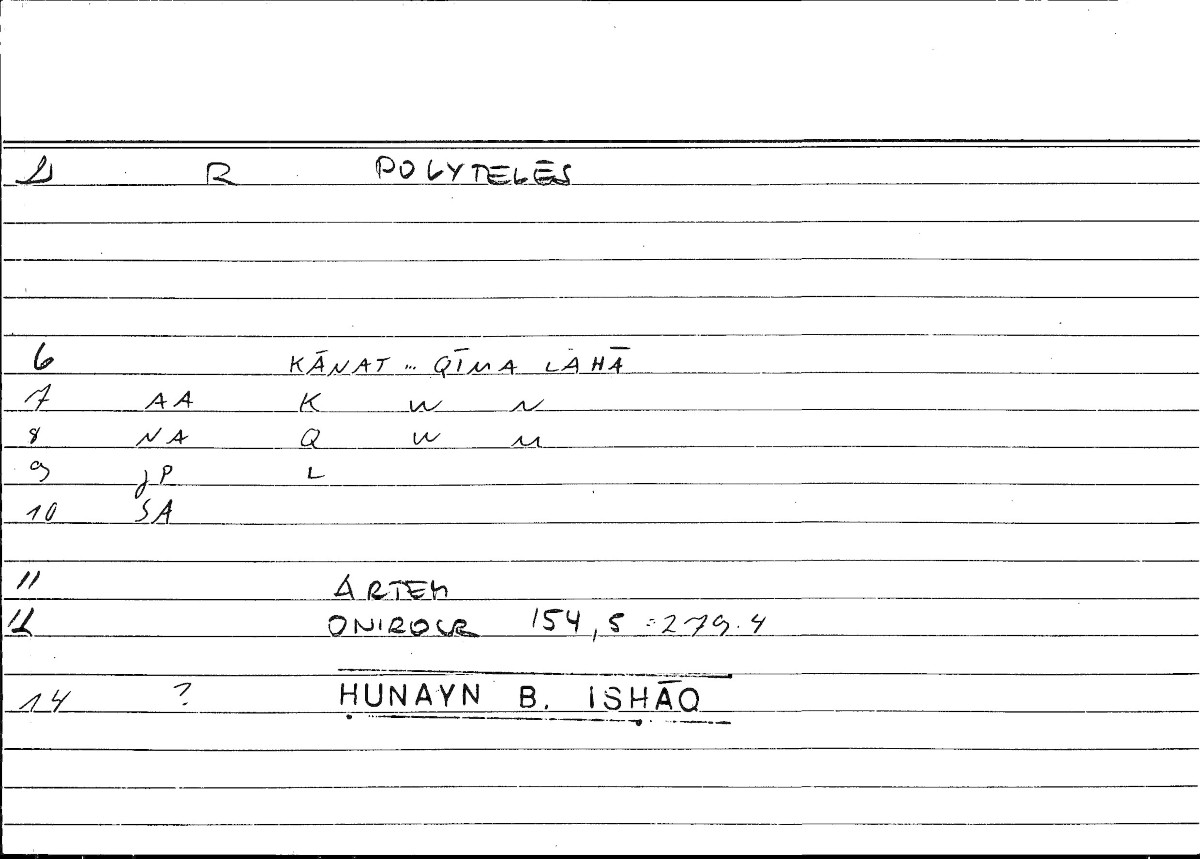 2 R POLYTELĒS
6 KĀNAT ... QĪMA LAHĀ
7 AA K W N
8 NA Q W M
9 JP L
10 SA
11 ARTEM
12 ONIROCR 154,5 = 279.4
14 ? ḤUNAYN B. ISḤĀQ